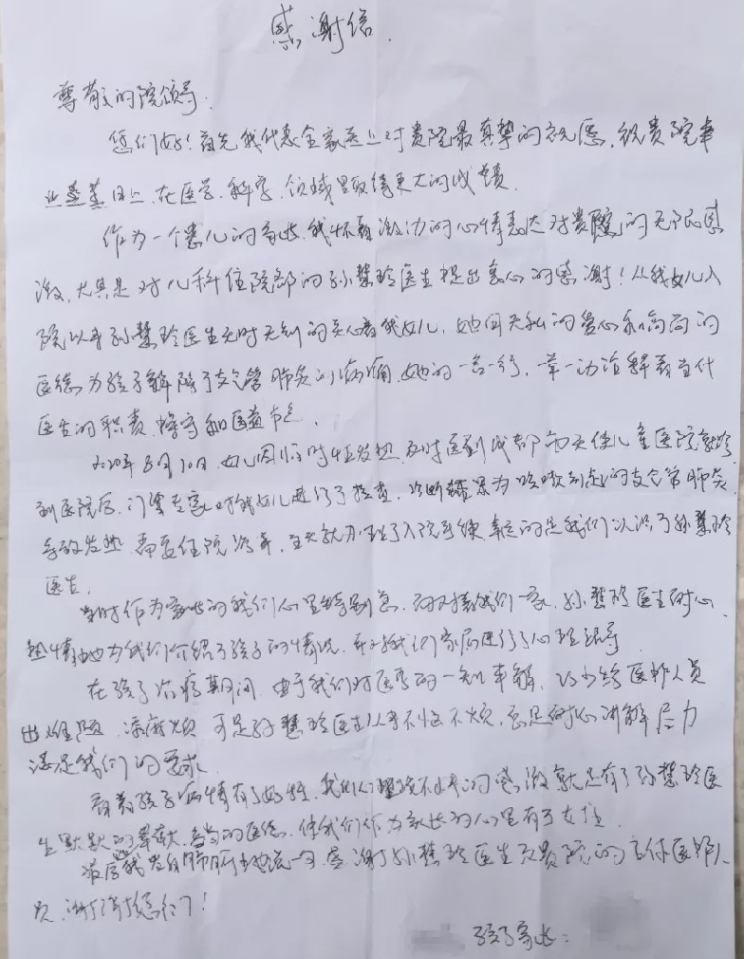 感谢信
尊敬的院领导：
您们好！首先我代表全家送上对贵院最真挚的祝愿，祝贵院事
业蒸蒸日上，在医学、科学、领域里取得更大的成绩。
作为一个患儿的家长，我怀着激动的心情表达对贵院的无限感
激，尤其是对儿科住院部的孙慧玲医生提出衷心的感谢！从我女儿入
院以来孙慧玲医生无时无刻的关心着我女儿，她用无私的爱心和高尚的
医德为孩子解除了支气管肺炎的病痛，她的一言一行，一举一动诠释着当代
医生的职责、操守和医益节气。
2020年8月10日，女儿因临时性发热，及时送到成都市天使儿童医院就诊
到医院后，门诊专家对我女儿进行了检查，诊断结果为咳嗽引起的支气管肺炎
导致发热，需要住院治疗，当天就办理了入院手续，幸运的是我们认识了孙慧玲
医生。
当时作为家长的我们心里特别急，面对着我们一家，孙慧玲医生耐心、
热情地为我们介绍了孩子的情况，并对我们家属进行了心理疏导。
在孩子治疗期间，由于我们对医学的一知半解，没少给医护人员
出难题，添麻烦，可是孙慧玲医生从来不怕不烦，总是耐心讲解尽力
满足我们的要求。
看着孩子病情有了好转，我们心里说不出来的感激，就是有了孙慧玲医
生默默的奉献，高尚的医德，使我们作为家长的心里有了支柱。
最后我发自肺腑地说一句，感谢孙慧玲医生及贵院的全体医护人
员，谢谢您们！
孩子家长：